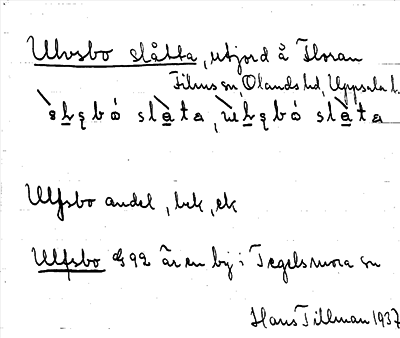 Ulvsbo slåtta, utjord å Floran
Films sn, Olands hd, Uppsala l.
slåta,
Ulfsbo andel, bek, ek
Ulfsbo G 92 är en by i Tegelsmora sn
Hans Tillman 1937